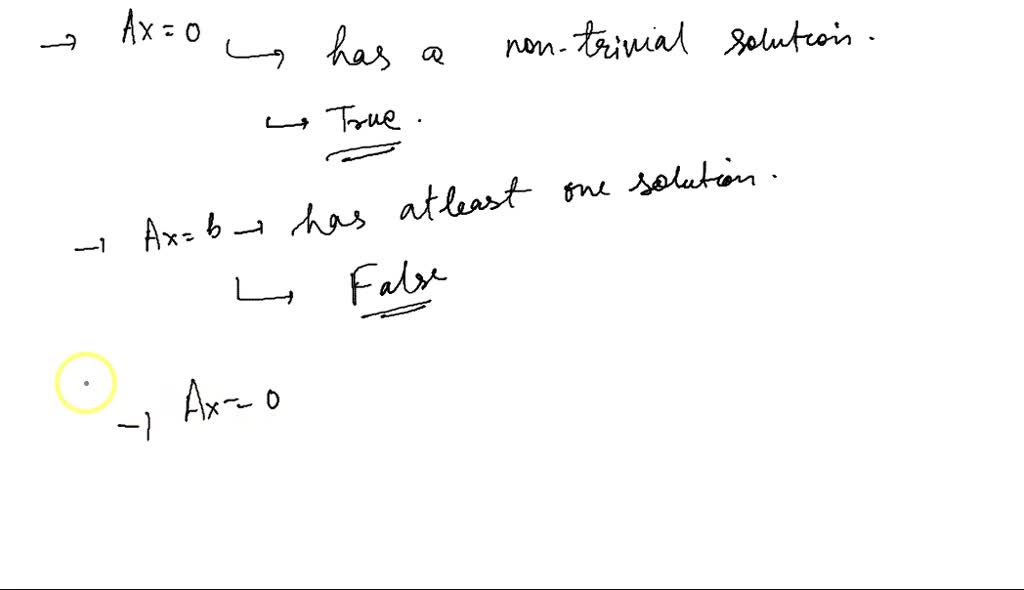 → Ax = 0 ↳ has a non-trivial solution.
↳ True.
→ Ax = b → has atleast one solution.
↳ False
→ Ax = 0